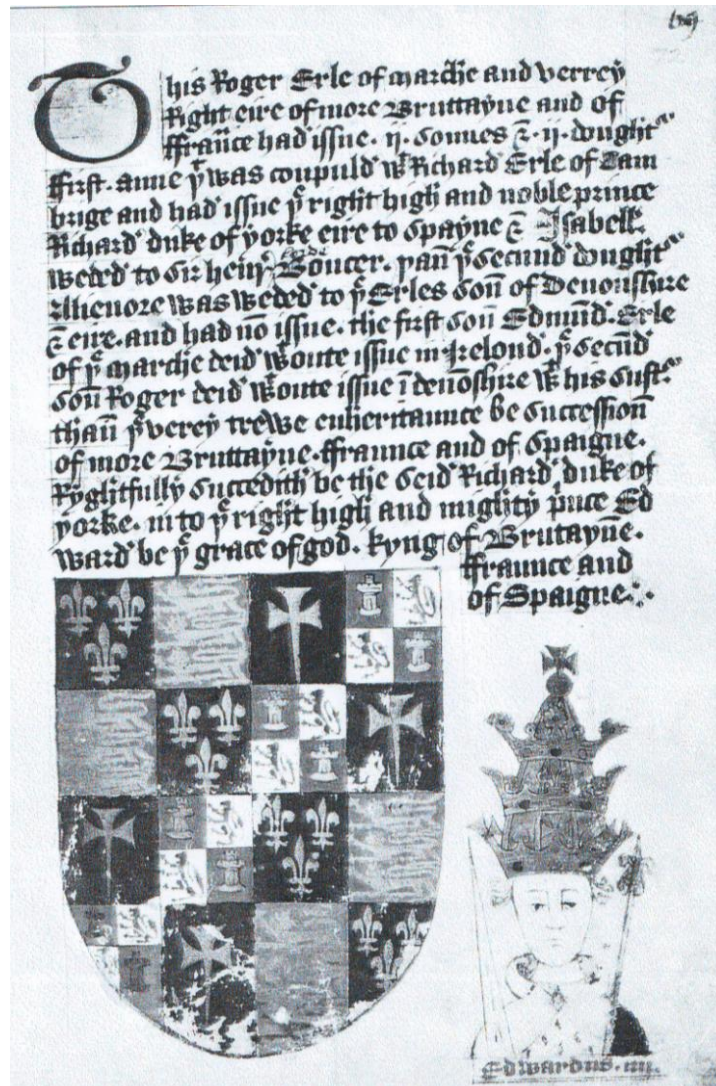 72
This Roger Erle of marche and verrey
Right eire of more Bruttayne and of
ffraūce had issue . ii . sonnes & . ii . dought
ffirst . anne yͭ was coupuld wͭ Richard Erle of Cam
brige and had issue yͤ right high and noble prince
Richard duke of yorke eire to Spayne & Isabell
weded to sir henr Boucer . yan yͤ secund dought
Alienore was weded to yͤ Erles son of Devonshire
& eire . and had no issue . the first son Edmūd . Erle
of yͤ marche deid wͭoute issue in Irelond . yͤ secūd
son Roger deid wͭoute issue ī denoshire wͭ his sust
than yͤ verey trewe enheritaunce be succession
of more Bruttayne . ffraunce and of Spaigne .
Ryghtfully succedith be the seid Richard duke of
yorke . in to yͤ right high and mighty pͥnce Ed
ward be yͤ grace of god . kyng of Brutayne .
ffraunce and
of Spaigne .
Edwardus . iiii .